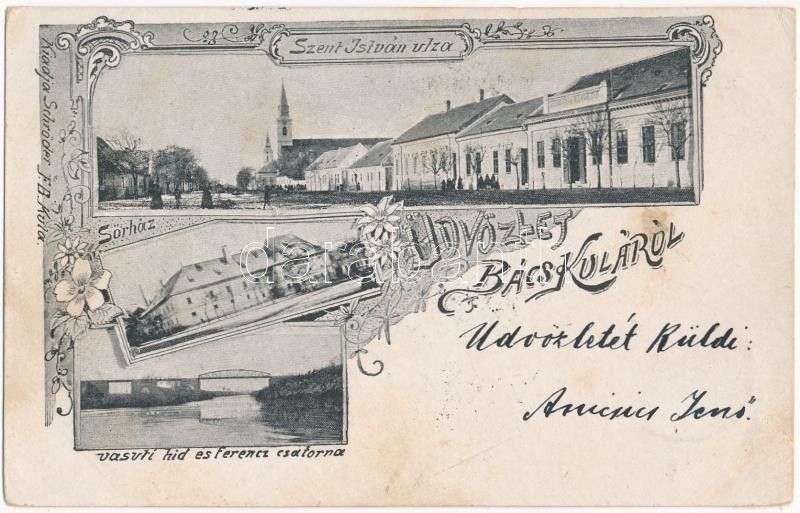 Szent István utza
Kiadja Schröder I. B. Kula.
Sörház
ÜDVÖZLET
BÁCSKULÁRÓL
darabanth
Üdvözletét Küldi:
Jenő.
vasuti hid es ferencz csatorna